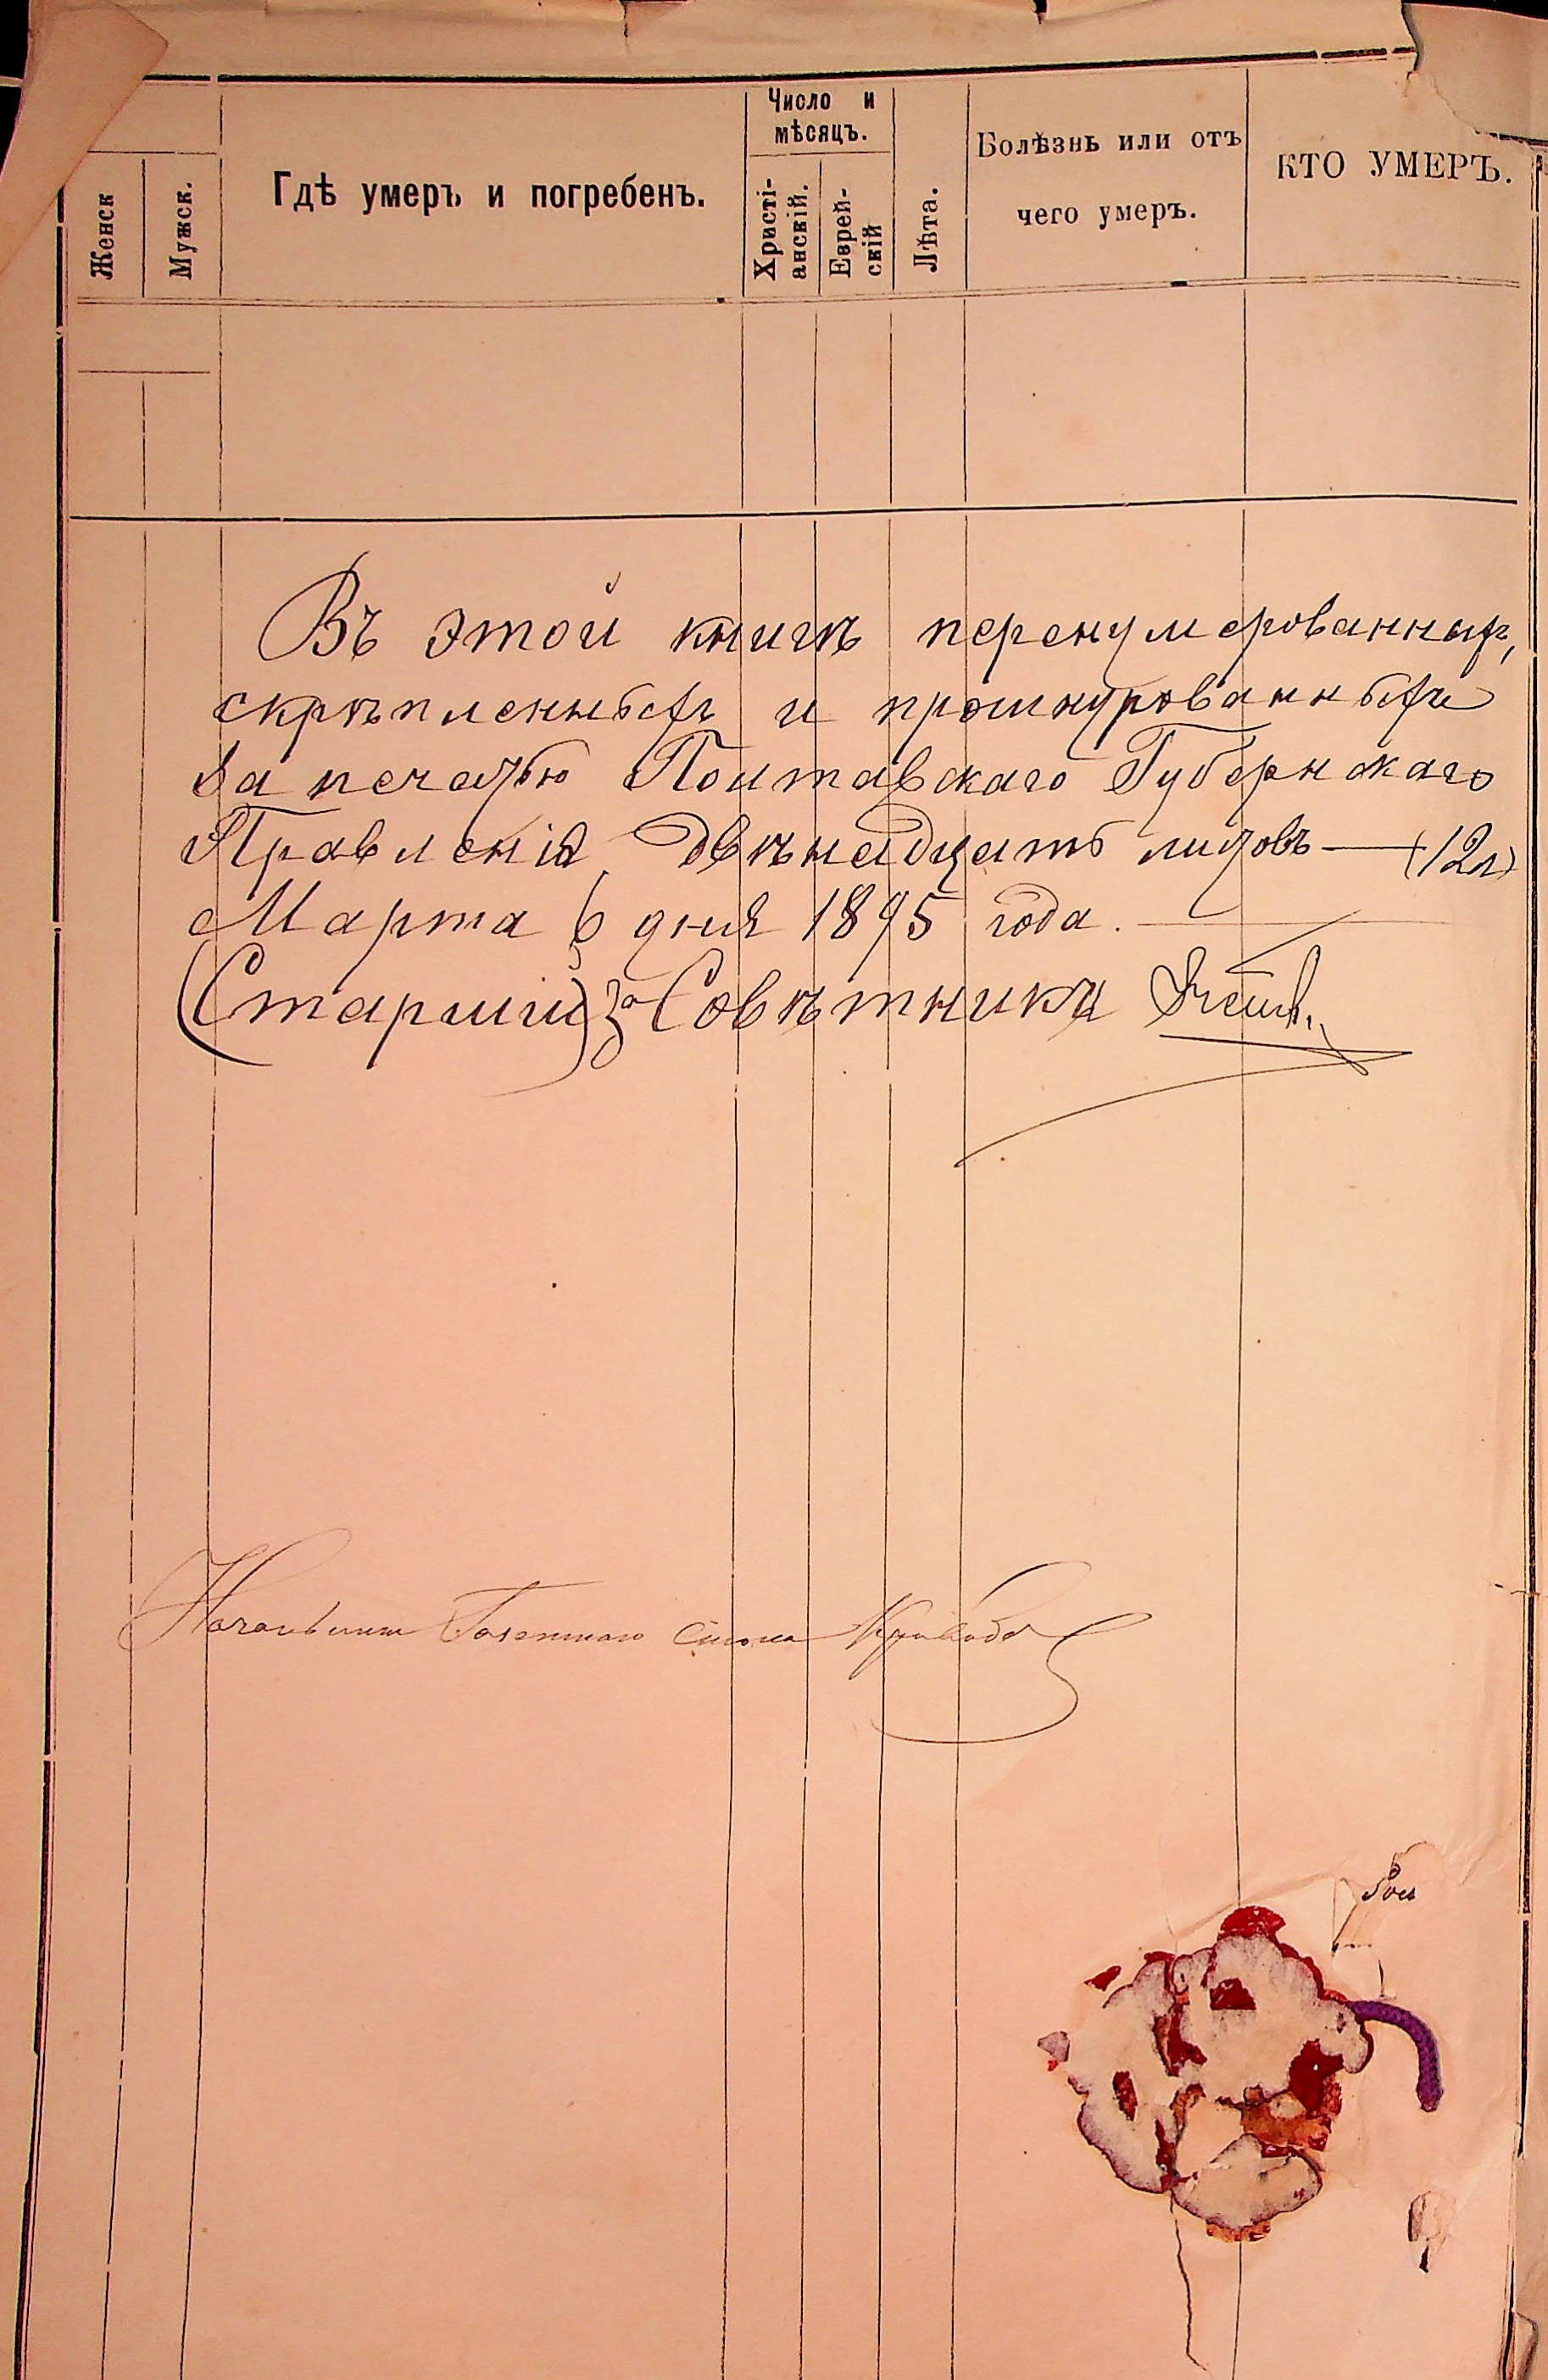 Женск
Мужск.
Гдѣ умеръ и погребенъ.
Число и
мѣсяцъ.
Христі-
анскій.
Еврей-
скій
Лѣта.
Болѣзнь или отъ
чего умеръ.
КТО УМЕРЪ.
Въ этой книгѣ перенумерованныхъ,
скрѣпленныхъ и прошнурованныхъ
за печатью Полтавскаго Губернскаго
Правленія двѣнадцать листовъ — (12 л)
Марта 6 дня 1895 года.
(Старшій) за Совѣтника
Начальникъ Газетнаго Стола